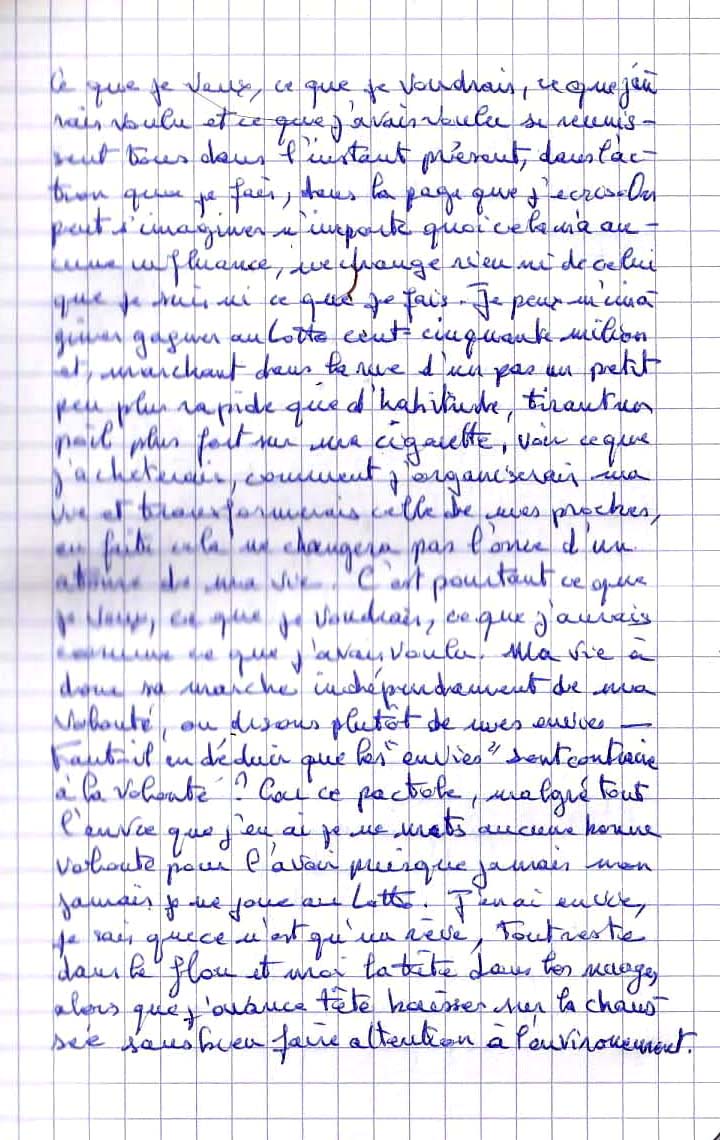 Ce que je veux, ce que je voudrais, ce que j'au
rais voulu et ce que j'avais voulu se réunis-
sent tous dans l'instant présent, dans l'ac-
tion que je fais, dans la page que j'écris. On
peut s'imaginer n'importe quoi cela n'a au-
cune influance, ne change rien ni de celui
que je suis ni ce que je fais. Je peux m'ima
giner gagner au Lotto cent cinquante milion
et, marchant dans la rue d'un pas un petit
peu plus rapide que d'habitude, tirant un
poil plus fort sur ma cigarette, voir ce que
j'acheterais, comment j'organiserais ma
vie et transformerais celle de mes proches,
en faite cela ne changera pas l'once d'un
atome de ma vie. C'est pourtant ce que
je veux, ce que je voudrais, ce que j'aurais
comme ce que j'avais voulu. Ma vie à
donc sa marche indépendament de ma
volonté, ou disons plutôt de mes envies —
Faut-il en déduir que les "envies" sont contraire
à la volonté ? Car ce pactole, malgré tout
l'envie que j'en ai je ne mets aucune bonne
volonté pour l'avoir puisque jamais mon
jamais je ne joue au Lotto. J'en ai envie,
je sais que ce n'est qu'un rêve, tout reste
dans le flou et moi la tête dans les nuages
alors que j'avance tête baisser sur la chaus
sée sans bien faire attention à l'environement.